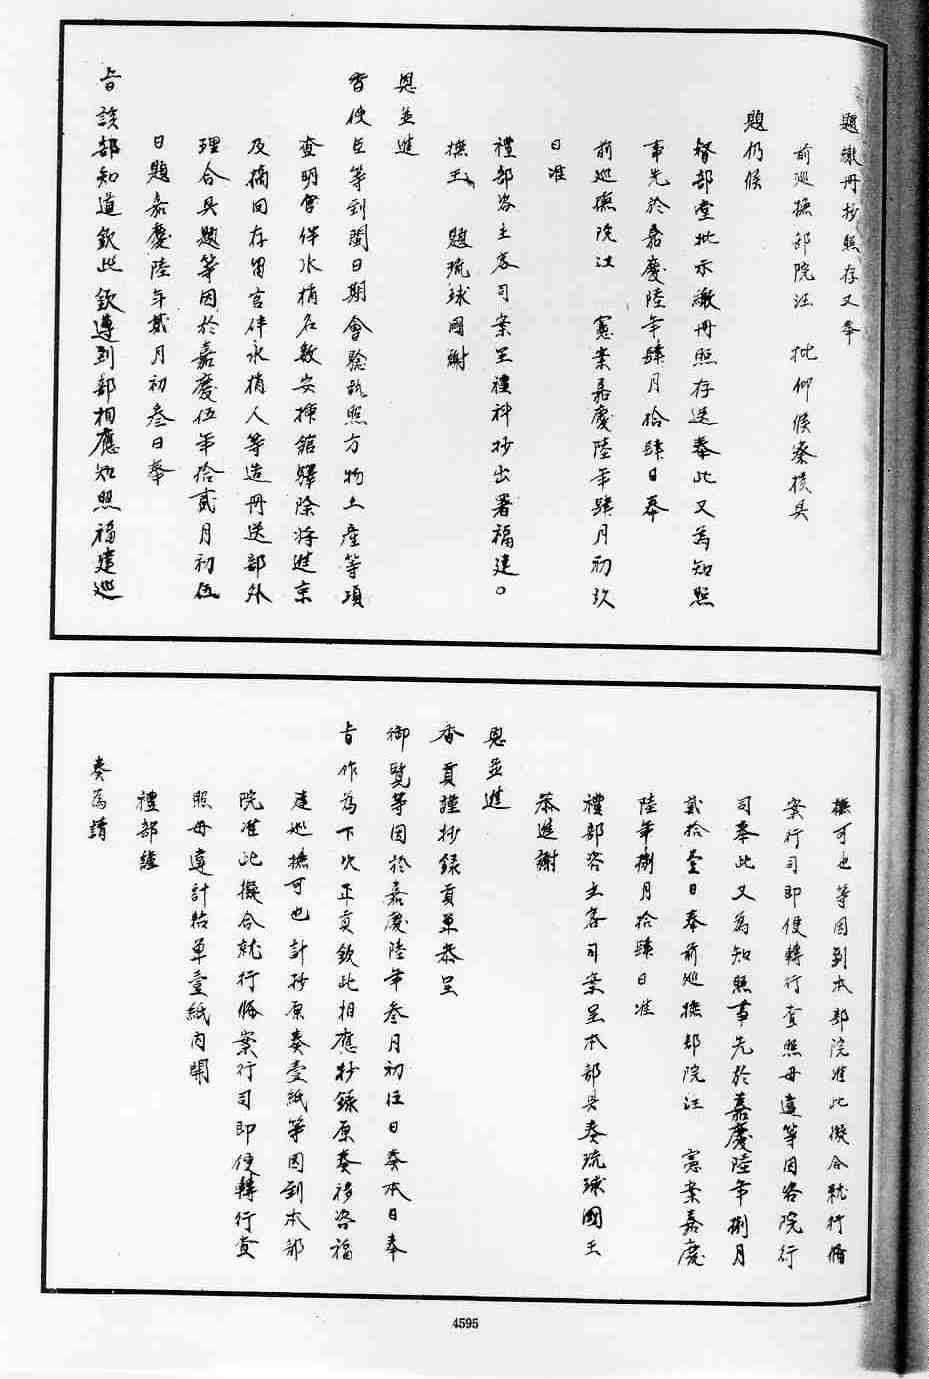 題繳冊抄照存又奉
前巡撫部院汪 批仰候察核具
題仍候
督部堂批示繳冊照存送奉此又為知照
事先於嘉慶陸年肆月拾肆日奉
前巡撫院汪 憲案嘉慶陸年肆月初玖
日准
禮部咨主客司案呈禮科抄出署福建。
撫王 題琉球國謝
恩並進
貢使臣等到閩日期會驗執照方物土產等項
查明官伴水梢名數安揷館驛除將進京
及摘回存留官伴水梢人等造冊送部外
理合具題等因於嘉慶伍年拾貳月初伍
日題嘉慶陸年貳月初叁日奉
旨該部知道欽此欽遵到部相應知照福建巡
撫可也等因到本部院准此擬合就行備
案行司即便轉行查照毋違等因咨院行
司奉此又為知照事先於嘉慶陸年捌月
貳拾壹日奉前巡撫部院汪 憲案嘉慶
陸年捌月拾肆日准
禮部咨主客司案呈本部具奏琉球國王
恭進謝
恩並進
香貢謹抄錄貢单恭呈
御覽等因於嘉慶陸年叁月初任日奏本日奉
旨作為下次正貢欽此相應抄錄原奏移咨福
建巡撫可也計抄原奏壹紙等因到本部
院准此擬合就行偹案行司即便轉行查
照毋違計粘单壹紙內開
禮部謹
奏為請
4595